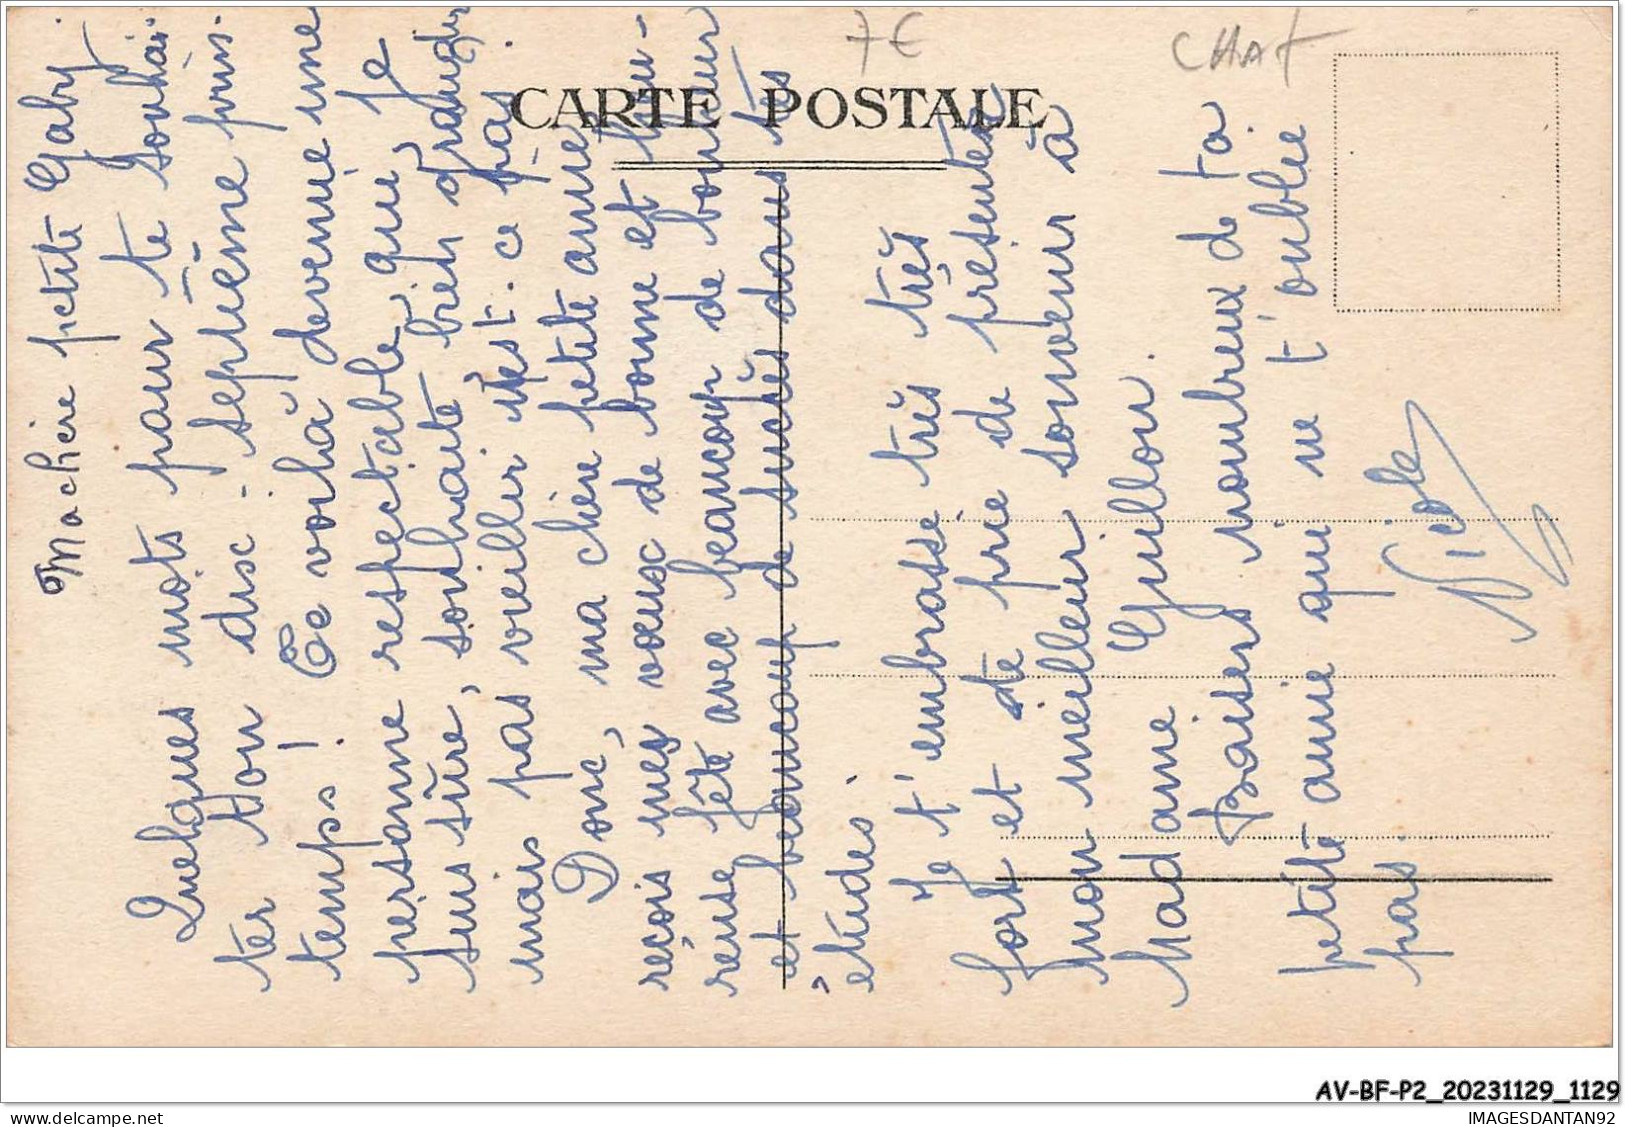 7€
CHAT
CARTE POSTALE
Ma chère petite Gaby.
Quelques mots pour te souhai-
ter ton dix-septième prin-
temps! Te voilà devenue une
personne respectable que je
suis sûre, souhaite bien grandir
mais pas vieillir n'est-ce pas.
Donc, ma chère petite amie,
recois mes voeux de bonne et heu-
reuse fête avec beaucoup de bonheur
et beaucoup de succès dans tes
études.
Je t'embrasse très très très
fort et te prie de présenter
mon meilleur souvenir à
Madame Guillon.
Baisers nombreux de ta
petite amie qui ne t'oublie
pas.
Nicole
AV-BF-P2_20231129_1129
delcampe.net
IMAGESDANTAN92